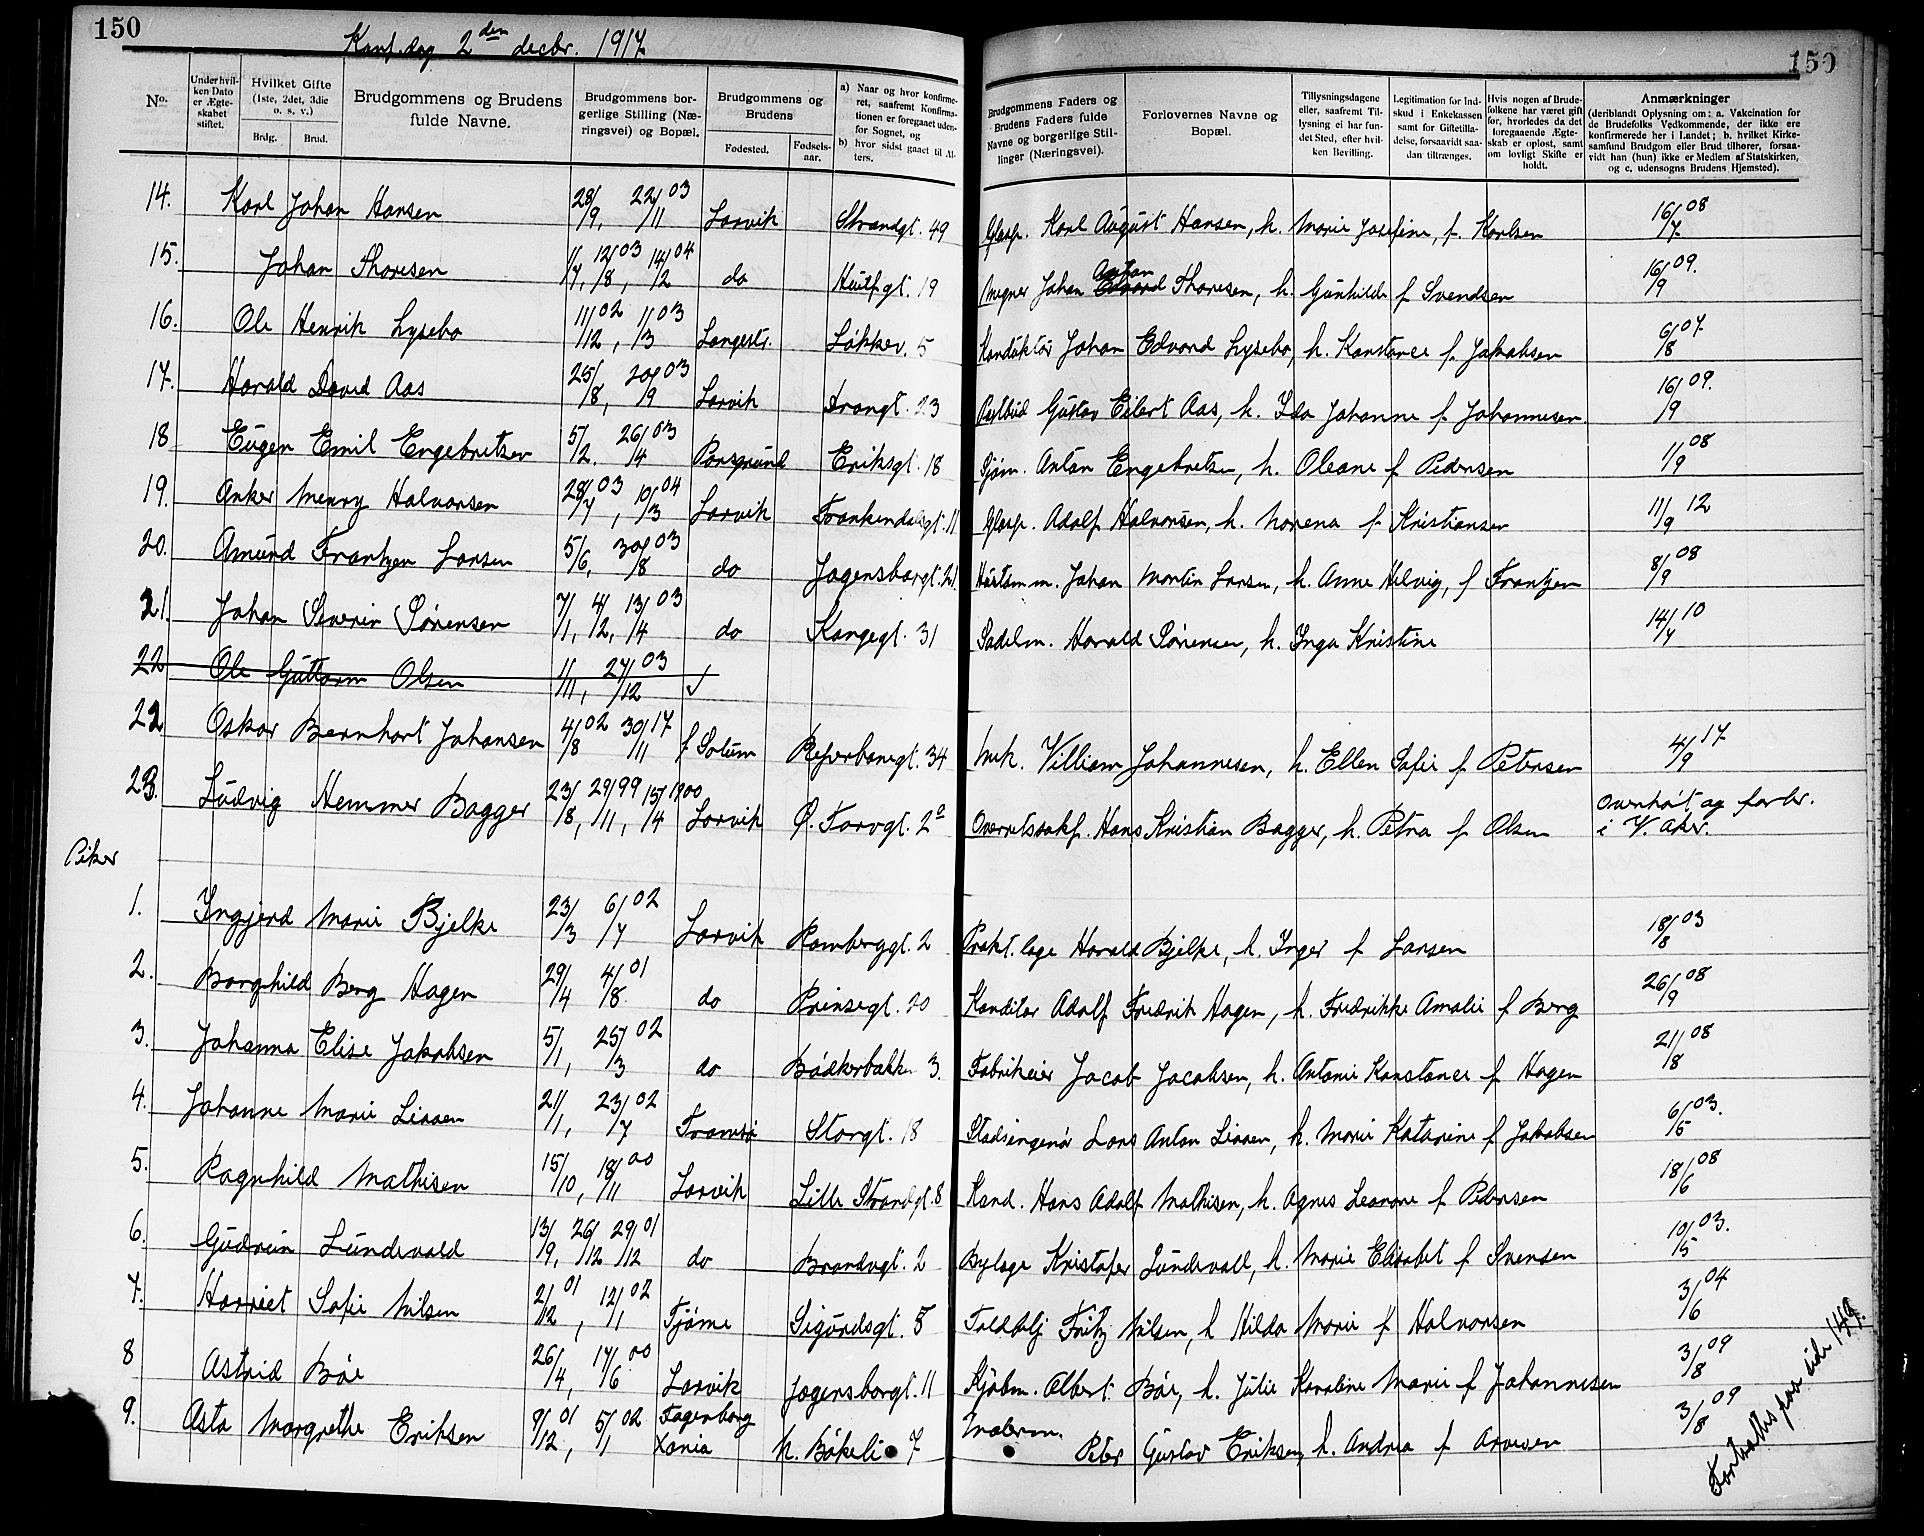 150
150
Konf.dag 2den decbr. 1917
No.
Under hvilken Dato er Ægteskabet stiftet.
Hvilket Gifte (1ste, 2det, 3die o. s. v.)
Brdg.
Brud.
Brudgommens og Brudens fulde Navne.
Brudgommens borgerlige Stilling (Næringsvei) og Bopæl.
Brudgommens og Brudens
Fødested.
Fødselsaar.
a) Naar og hvor konfirmeret, saafremt Konfirmationen er foregaaet udenfor Sognet, og
b) hvor sidst gaaet til Alters.
Brudgommens Faders og Brudens Faders fulde Navne og borgerlige Stillinger (Næringsvei).
Forlovernes Navne og Bopæl.
Tillysningsdagene eller, saafremt Tillysning ei har fundet Sted, efter hvilken Bevilling.
Legitimation for Indskud i Enkekassen samt for Giftetilladelse, forsaavidt saadan tiltrænges.
Hvis nogen af Brudefolkene har været gift før, hvorledes da det foregaaende Ægteskab er opløst, samt om lovligt Skifte er holdt.
Anmærkninger
(deriblandt Oplysning om: a. Vakcination for de Brudefolks Vedkommende, der ikke ere konfirmerede her i Landet; b. hvilket Kirkesamfund Brudgom eller Brud tilhører, forsaavidt han (hun) ikke er Medlem af Statskirken, og c. udensogns Brudens Hjemsted).
14. Karl Johan Hansen 28/9, 22/11 03 Larvik Strandgt. 49 Glasp. Karl August Hansen, h. Marie Josefine, f. Karlsen 16/7 08
15. Johan Thoresen 1/7, 12/8 03, 14/12 04 do 19 Johan Edvard Anton Thoresen, h. Gunhilde f Svendsen 16/9 09.
16. Ole Henrik Lysebo 11/12 02, 1/3 03 Langestr. Løkkev. 5 Konduktør Johan Edvard Lysebo, h. Konstance f. Jakobsen 6/8 07
17. Harald David Aas 25/8, 20/9 03 Larvik Trangt. 23 Postbud Gustav Eilert Aas, h. Ida Johanne f. Johannesen. 16/9 09.
18 Eugen Emil Engebretsen 5/2. 26/4 03 Porsgrund Eriksgt. 18 Sjøm. Anton Engebretsen, h. Oleane f Pedersen 1/9 08
19. Anker Menry Halvorsen 28/7 03, 10/3 04 Larvik Frankendalsgt. 11 Glasp. Adolf Halvorsen, h. Norena f Kristiansen 11/9 12
20. Amund Frantzen Larsen 5/6, 30/8 03 do Jegersborgt. 21 Johan Martin Larsen, h. Anne Helvig, f Frantzen 8/9 08
21. Johan Severin Sørensen 7/1, 4/2, 13/4 03 do Kongegt. 31 Sadelm. Harald Sørensen, h. Inga Kristine 14/7 10
22 Ole Guttorm Olsen 1/11, 27/12 03
22 Oskar Bernhart Johansen 4/8 02 30/11 17 f Solum Reperbanegt. 34 Mek. Villiam Johannesen, h. Ellen Sofie f Petersen 4/9 17
23. Ludvig Hemmer Bagger 23/8, 29/11 99, 15/4 1900 Larvik Ø. Torvgt. 2a Overretssakf. Hans Kristian Bagger, h. Petra f Olsen Overhørt og forbr. i V. Aker.
Piker
1. Ingjerd Marie Bjelke 23/3 6/7 02 Larvik Rambergt. 2 Prakt. læge Harald Bjelke, h Inger f Larsen 18/8 03
2. Borghild Berg Hagen 29/4 4/8 01 do Prinsegt. 20 Konditor Adolf Fredrik Hagen, h. Fredrikke Amalie f Berg 26/9 08
3. Johanna Elise Jakobsen 5/1, 25/3 02 do Bødkerbakken 3. Fabrikeier Jacob Jacobsen, h. Antonie Konstance f Hagen 21/8 08
4. Johanne Marie Liaaen 21/1, 23/7 02 Tromsø Storgt. 18 Stadsingeniør Lars Anton Liaaen, h. Marie Katarine f Jakobsen 6/5 03.
5. Ragnhild Mathisen 15/10, 18/11 00 Larvik Lille Strandgt. 8 Kand. Hans Adolf Mathisen, h. Agnes Leonore f Petersen 18/6 08
6. Gudrun Lundevald 13/9, 26/12 29/12 01 do Brandvgt. 2 Bylæge Kristofer Lundevall, h. Marie Elisabet f Svensen 10/5 03.
7. Harriet Sofie Nilsen 2/12 01, 12/1 02 Tjøme Sigurdsgt. 8 Toldbtj Fritz Nilsen, h Hilda Marie f Halvorsen 3/6 04
8 Astrid Bøe 26/4, 17/6 00 Larvik Jegersborgt. 11 Kjøbm. Albert Bøe, h. Julie Karoline Marie f Johannesen 3/8 09
9. Asta Margrethe Eriksen 9/12 01, 5/1 02 Fagerborg Xania N. Bøkeli 7 Malerm. Peter Gustav Eriksen, h. Andrea f Arvesen 3/8 09
Fortsættes paa side 149.